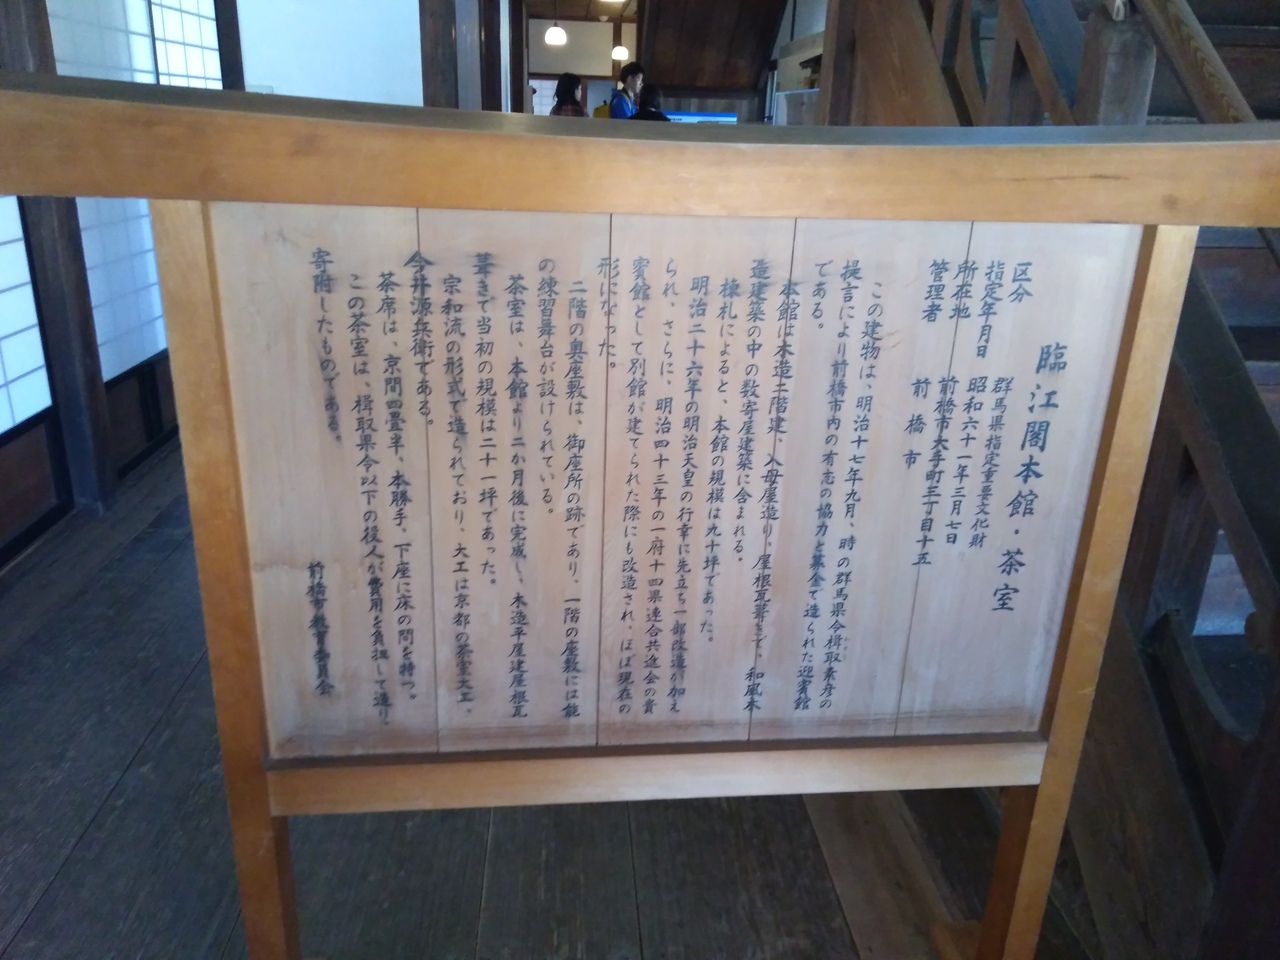 臨江閣本館・茶室
区分　群馬県指定重要文化財
指定年月日　昭和六十一年三月七日
所在地　前橋市大手町三丁目十五
管理者　前橋市
この建物は、明治十七年九月、時の群馬県令楫取素彦の
提言により前橋市内の有志の協力と募金で造られた迎賓館
である。
本館は木造二階建、入母屋造り、屋根瓦葺きで、和風木
造建築の中の数寄屋建築に含まれる。
棟札によると、本館の規模は九十坪であった。
明治二十六年の明治天皇の行幸に先立ち一部改造が加え
られ、さらに、明治四十三年の一府十四県連合共進会の貴
賓館として別館が建てられた際にも改造され、ほぼ現在の
形になった。
二階の奥座敷は、御座所の跡であり、一階の座敷には能
の練習舞台が設けられている。
茶室は、本館より二か月後に完成し、木造平屋建屋根瓦
葺きで当初の規模は二十一坪であった。
宗和流の形式で造られており、大工は京都の茶室大工、
今井源兵衛である。
茶席は、京間四畳半、本勝手、下座に床の間を持つ。
この茶室は、楫取県令以下の役人が費用を負担して造り、
寄附したものである。
前橋市教育委員会